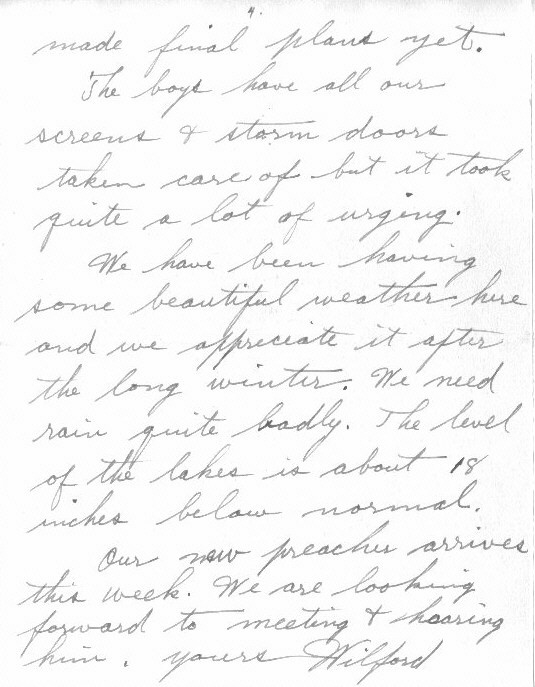 4.
made final plans yet.
The boys have all our
screens & storm doors
taken care of but it took
quite a lot of urging.
We have been having
some beautiful weather here
and we appreciate it after
the long winter. We need
rain quite badly. The level
of the lakes is about 18
inches below normal.
Our new preacher arrives
this week. We are looking
forward to meeting & hearing
him. yours Wilford